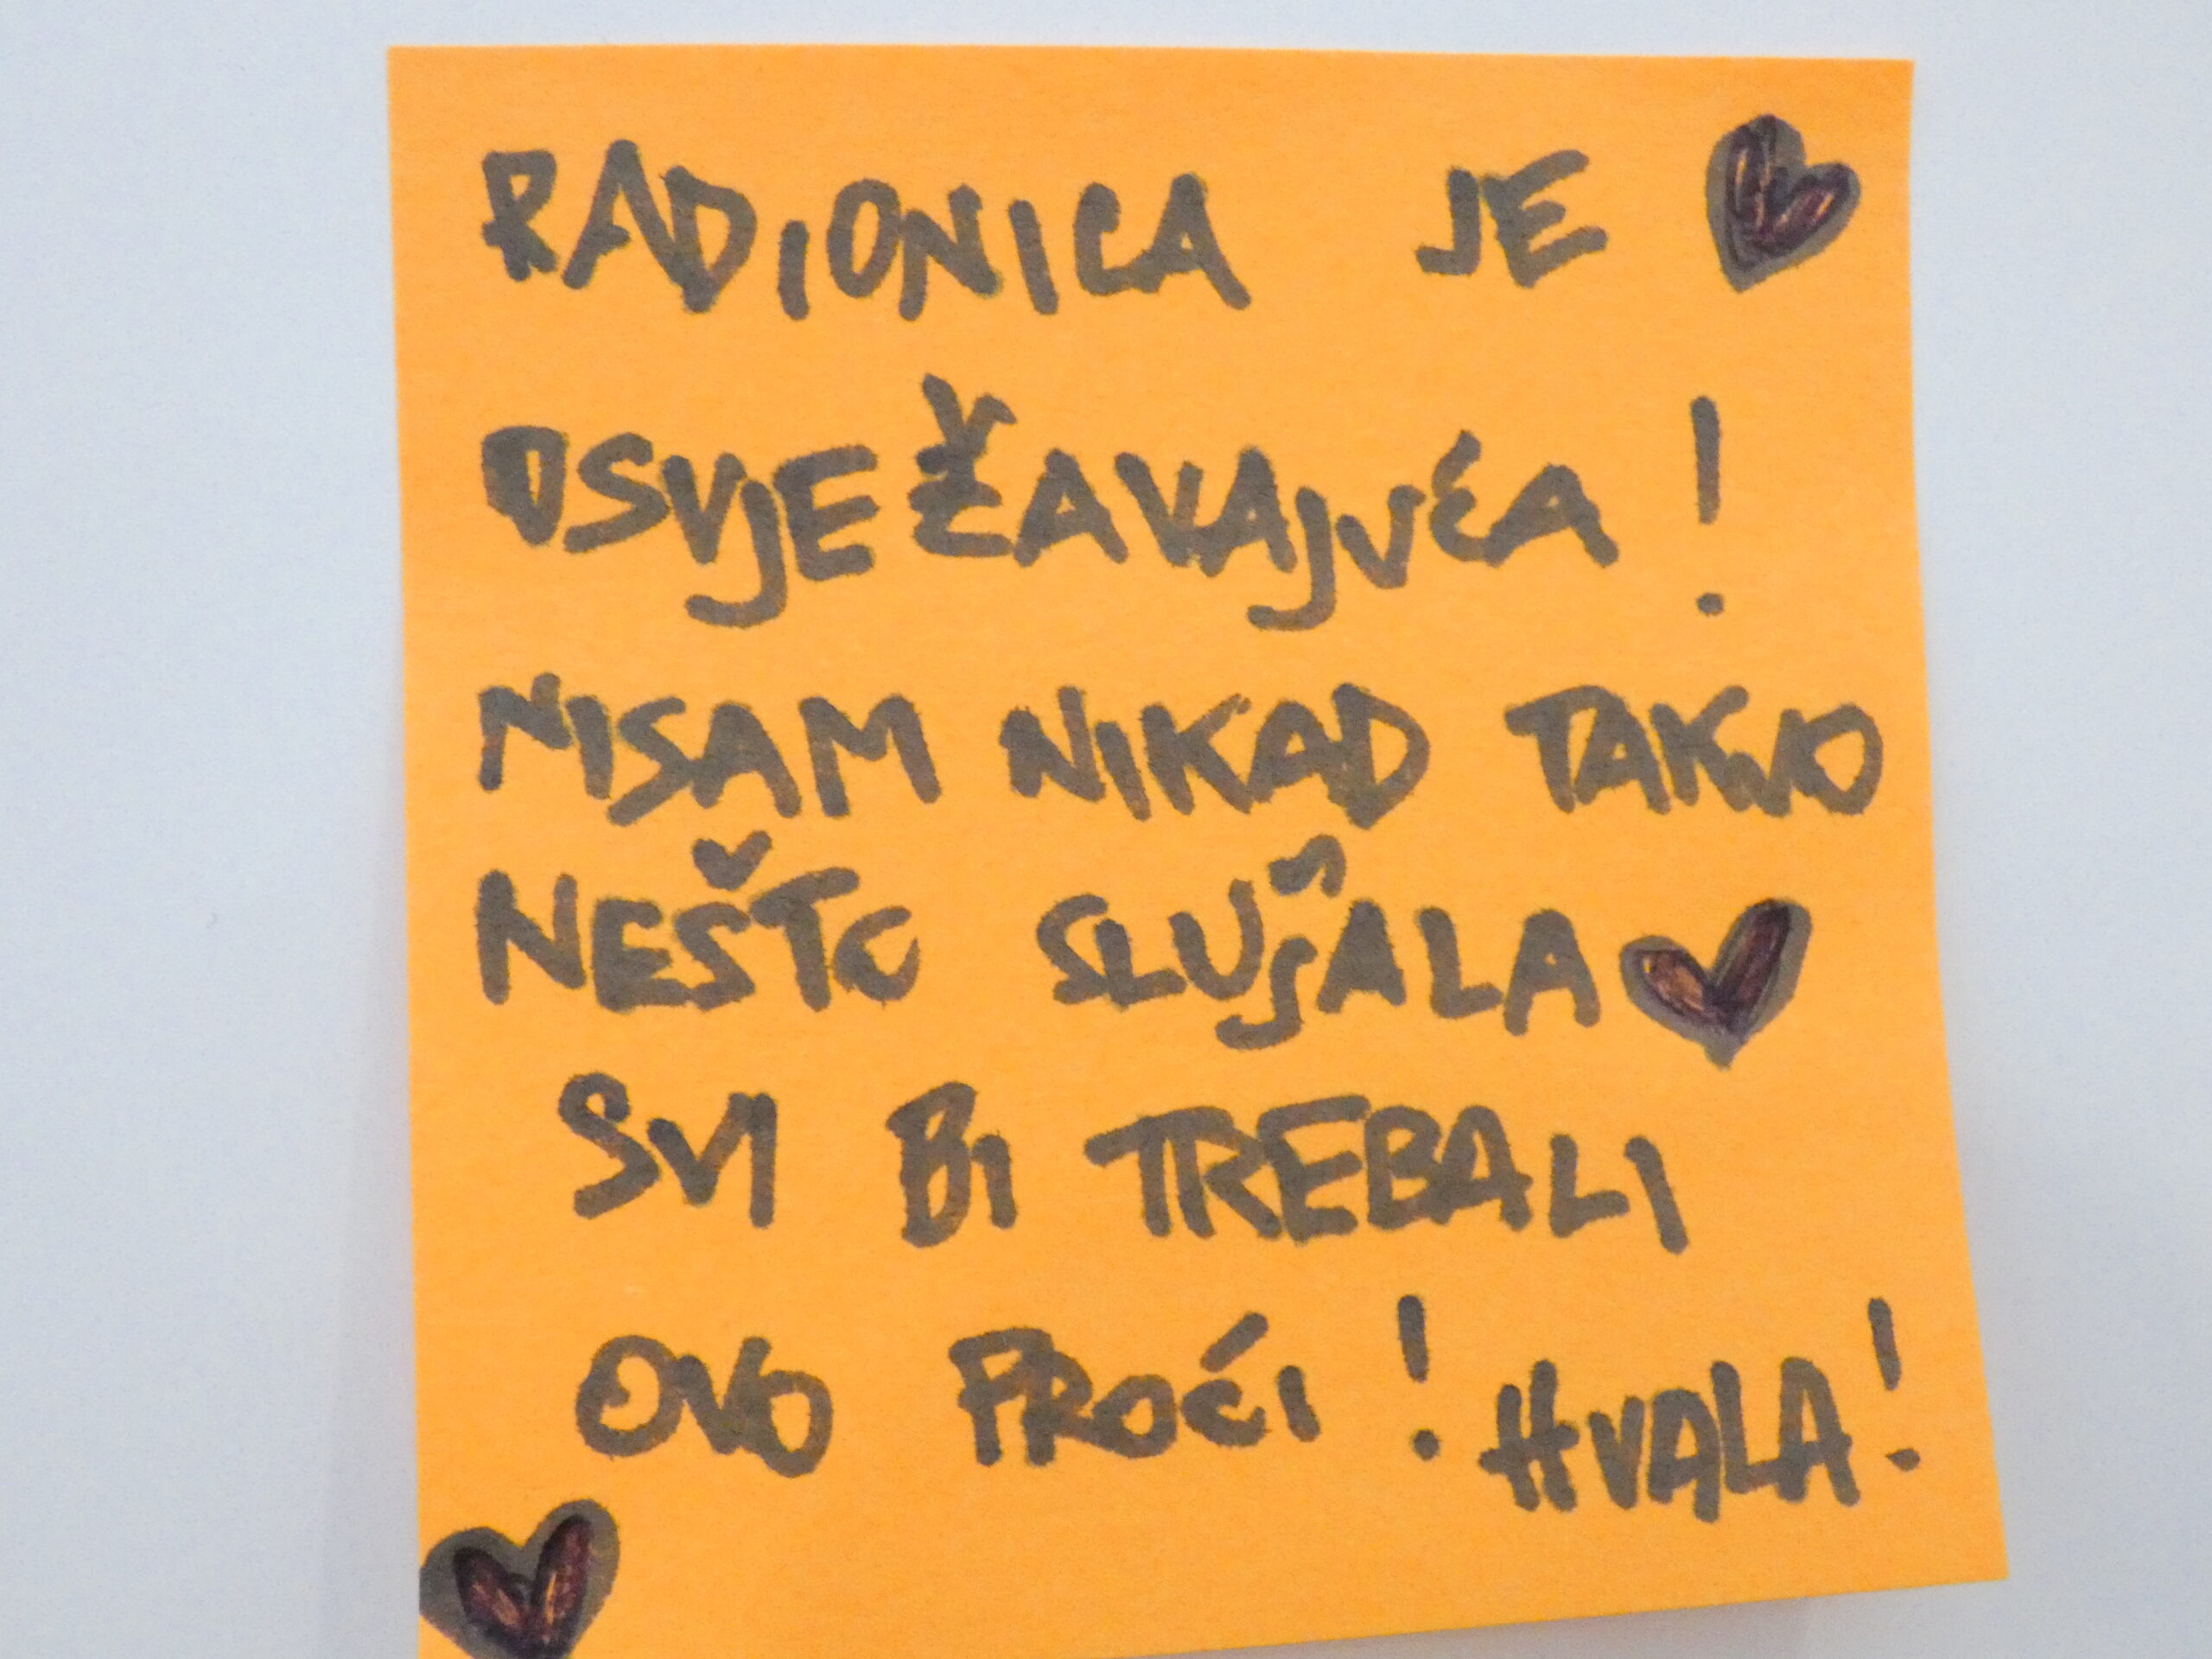 RADIONICA JE ♥
OSVJEŽAVAJUĆA !
NISAM NIKAD TAKVO
NEŠTO SLUŠALA ♥
SVI BI TREBALI
OVO PROĆI ! HVALA!
♥